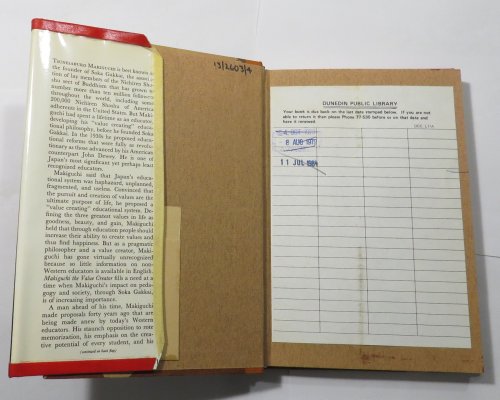 TSUNESABURO MAKIGUCHI is best known as
the founder of Soka Gakkai, the associa-
tion of lay members of the Nichiren Sho-
shu sect of Buddhism that has grown to
number more than ten million followers
throughout the world, including some
200,000 Nichiren Shoshu of America
adherents in the United States. But Maki-
guchi had spent a lifetime as an educator,
developing his "value creating" educa-
tional philosophy, before he founded Soka
Gakkai. In the 1930s he proposed educa-
tional reforms that were fully as revolu-
tionary as those advanced by his American
counterpart John Dewey. He is one of
Japan's most significant yet perhaps least
recognized educators.
Makiguchi said that Japan's educa-
tional system was haphazard, unplanned,
fragmented, and useless. Convinced that
the pursuit and creation of values are the
ultimate purpose of life, he proposed a
"value creating" educational system. De-
fining the three greatest values in life as
goodness, beauty, and gain, Makiguchi
held that through education people should
increase their ability to create values and
thus find happiness. But as a pragmatic
philosopher and a value creator, Maki-
guchi has gone virtually unrecognized
because so little information on non-
Western educators is available in English.
Makiguchi the Value Creator fills a need at a
time when Makiguchi's impact on peda-
gogy and society, through Soka Gakkai,
is of increasing importance.
A man ahead of his time, Makiguchi
made proposals forty years ago that are
being made anew by today's Western
educators. His staunch opposition to rote
memorization, his emphasis on the crea-
tive potential of every student, and his
(continued on back flap)
13/2603/4
DUNEDIN PUBLIC LIBRARY
Your book is due back on the last date stamped below. If you are not
able to return it then please Phone 77-530 before or on that date and
have it renewed.
8 AUG
11 JUL